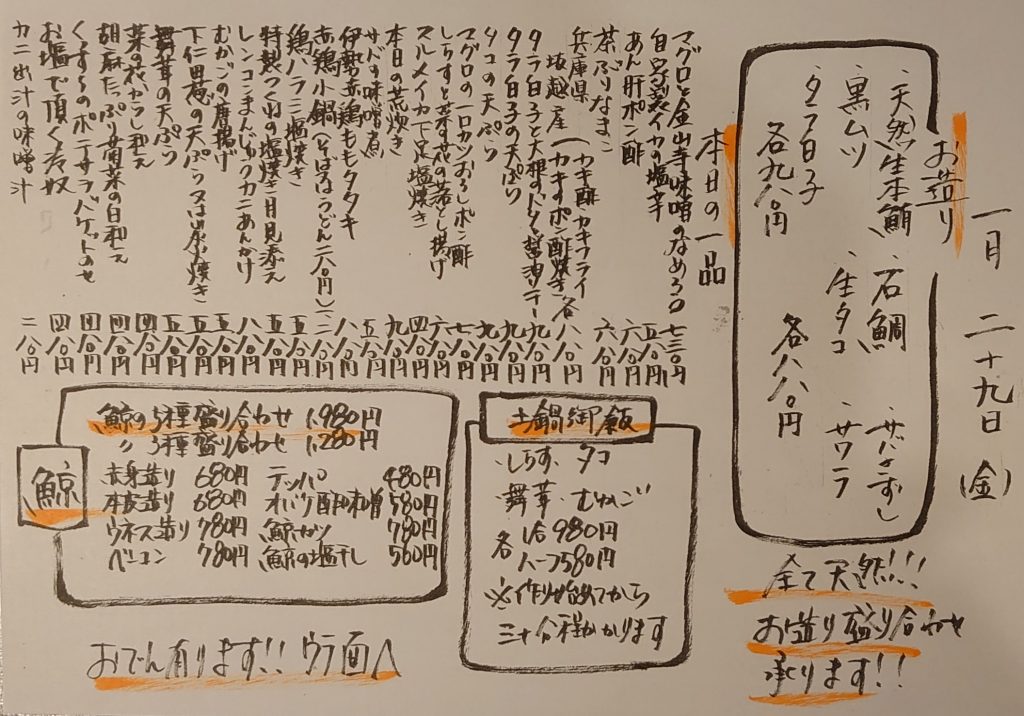 一月二十九日(金)
お造り
・天然生本鮪 ・石鯛 ・サバきずし
・黒ムツ ・生タコ ・サワラ
・タラ白子
各九八〇円 各八八〇円
全て天然!!!
お造り盛り合わせ
承ります!!
本日の一品
マグロと金山寺味噌のなめろう 七三〇円
自家製イカの塩辛 五八〇円
あん肝ポン酢 六八〇円
茶ぶりなまこ 六八〇円
兵庫県坂越産(カキ酢 カキフライ カキのポン酢焼き 各八八〇円
タラ白子と大根のバター醤油ソテー 九八〇円
タラ白子の天ぷら 九八〇円
タコの天ぷら 九八〇円
マグロの一口カツおろしポン酢 七八〇円
しらすと菜の花の落とし揚げ 六八〇円
スルメイカ下足塩焼き 四八〇円
本日の荒炊き 九八〇円
サバの味噌煮 五八〇円
伊勢赤鶏ももタタキ 八八〇円
赤鶏小鍋(そば又はうどん二八〇円)
鶏ハラミ塩焼き 五八〇円
特製つくねの塩焼き月見添え 五八〇円
レンコンまんじゅうカニあんかけ 八八〇円
むかごの唐揚げ 五八〇円
下仁田葱の天ぷら又は炭火焼き 五八〇円
舞茸の天ぷら 五八〇円
菜の花カラシ和え 四八〇円
胡麻たっぷり菊菜の白和え 四八〇円
くずし豆のポテサラバケットのせ 四八〇円
お塩で頂く冷奴 四八〇円
カニ出汁の味噌汁 二八〇円
土鍋御飯
・しらす ・タコ
・舞茸 ・むかご
各 1合980円
ハーフ580円
※作り始めてから
三十分程かかります
鯨
鯨の5種盛り合わせ 1,980円
〃 3種盛り合わせ 1,280円
赤身造り 680円 テッパ 480円
本皮造り 680円 オバケ酢味噌 580円
ウネス造り 780円 鯨カツ 780円
ベーコン 780円 鯨の塩干し 560円
おでん有ります!! ウラ面へ